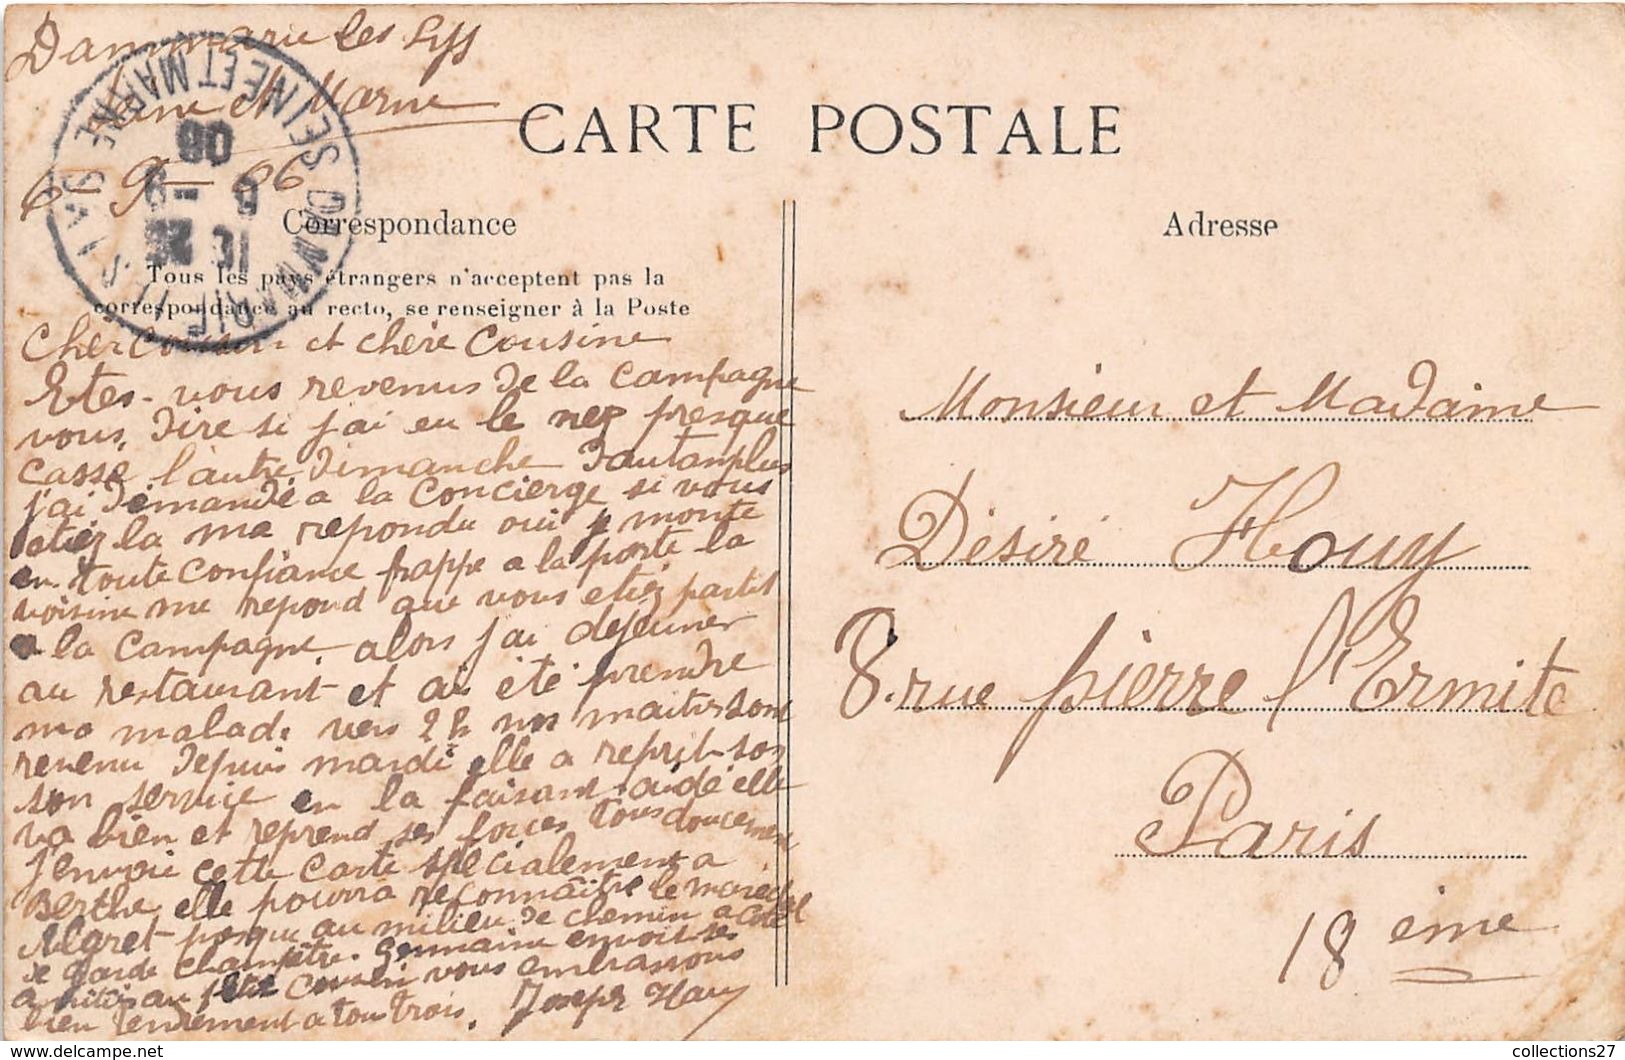 Dammarie les Lys
Seine et Marne
6-9-06
SEINE ET MARNE
DAMMARIE LES LYS
06
CARTE POSTALE
Correspondance
Tous les pays étrangers n'acceptent pas la
correspondance au recto, se renseigner à la Poste
Cher Cousin et chère Cousine
Etes-vous revenus de la Campagne
vous, dire si j'ai eu le nez presque
Cassé l'autre dimanche dautanplus
j'ai demandé a la Concierge si vous
etiez la ma repondu oui je monte
en toute Confiance frappe a la porte la
voisine me repond que vous etiez partit
a la Campagne, alors j'ai déjeuner
au restaurant et ais été prendre
ma malade vers 2h nos maitres sont
revenu depuis mardi elle a reprit son
son service en la faisant aidé elle
va bien et reprend ses forces tous doucement
J'envoie cette Carte specialement a
Berthe, elle pourra reconnaître le marechal
Algret presque au milieu de chemin a coté
de Garde Champêtre. Germaine envoit ses
amitiés au petit Cousin vous embrassons
bien tendrement a tous trois. Joseph Houy
Adresse
Monsieur et Madame
Désiré Houy
8. rue pierre l'Ermite
Paris
18 eme
collections27